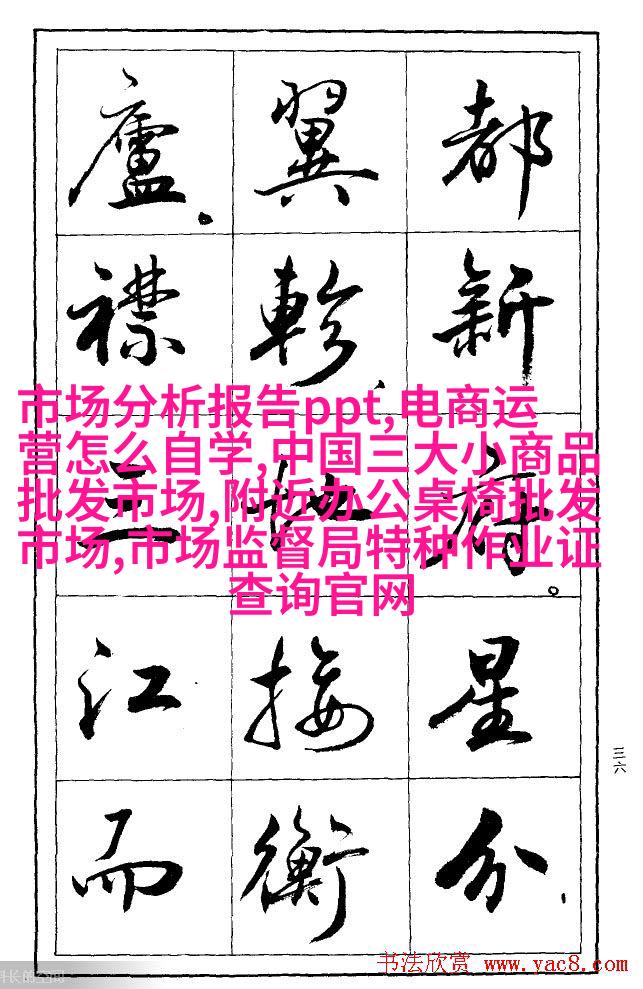 都新府。星分、
翼軫、地接衡
廬。襟三江而
市场分析报告ppt,电商运
营怎么自学,中国三大小商品
批发市场,附近办公桌椅批发
市场,市场监督局特种作业证
查询官网
三六
书法欣赏 www.yac8.com
长的空间